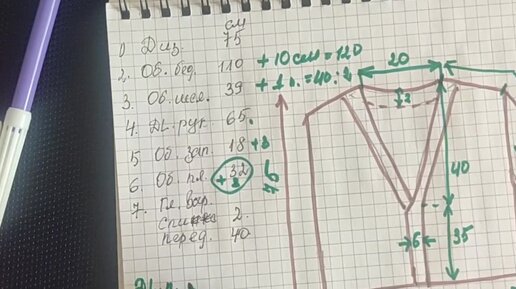 см
1. Диз. 75
2. Об. бед. 110 + 10 см = 120
3. Об. шеи. 39 + 1 с. = 40 : 2
4. Дл. рук. 65.
5. Об. зап. 18 + 8
6. Об. пл. 32 + 8
7. Гл. выр.
Спинка 2.
перед. 40
20
2
40
6
35